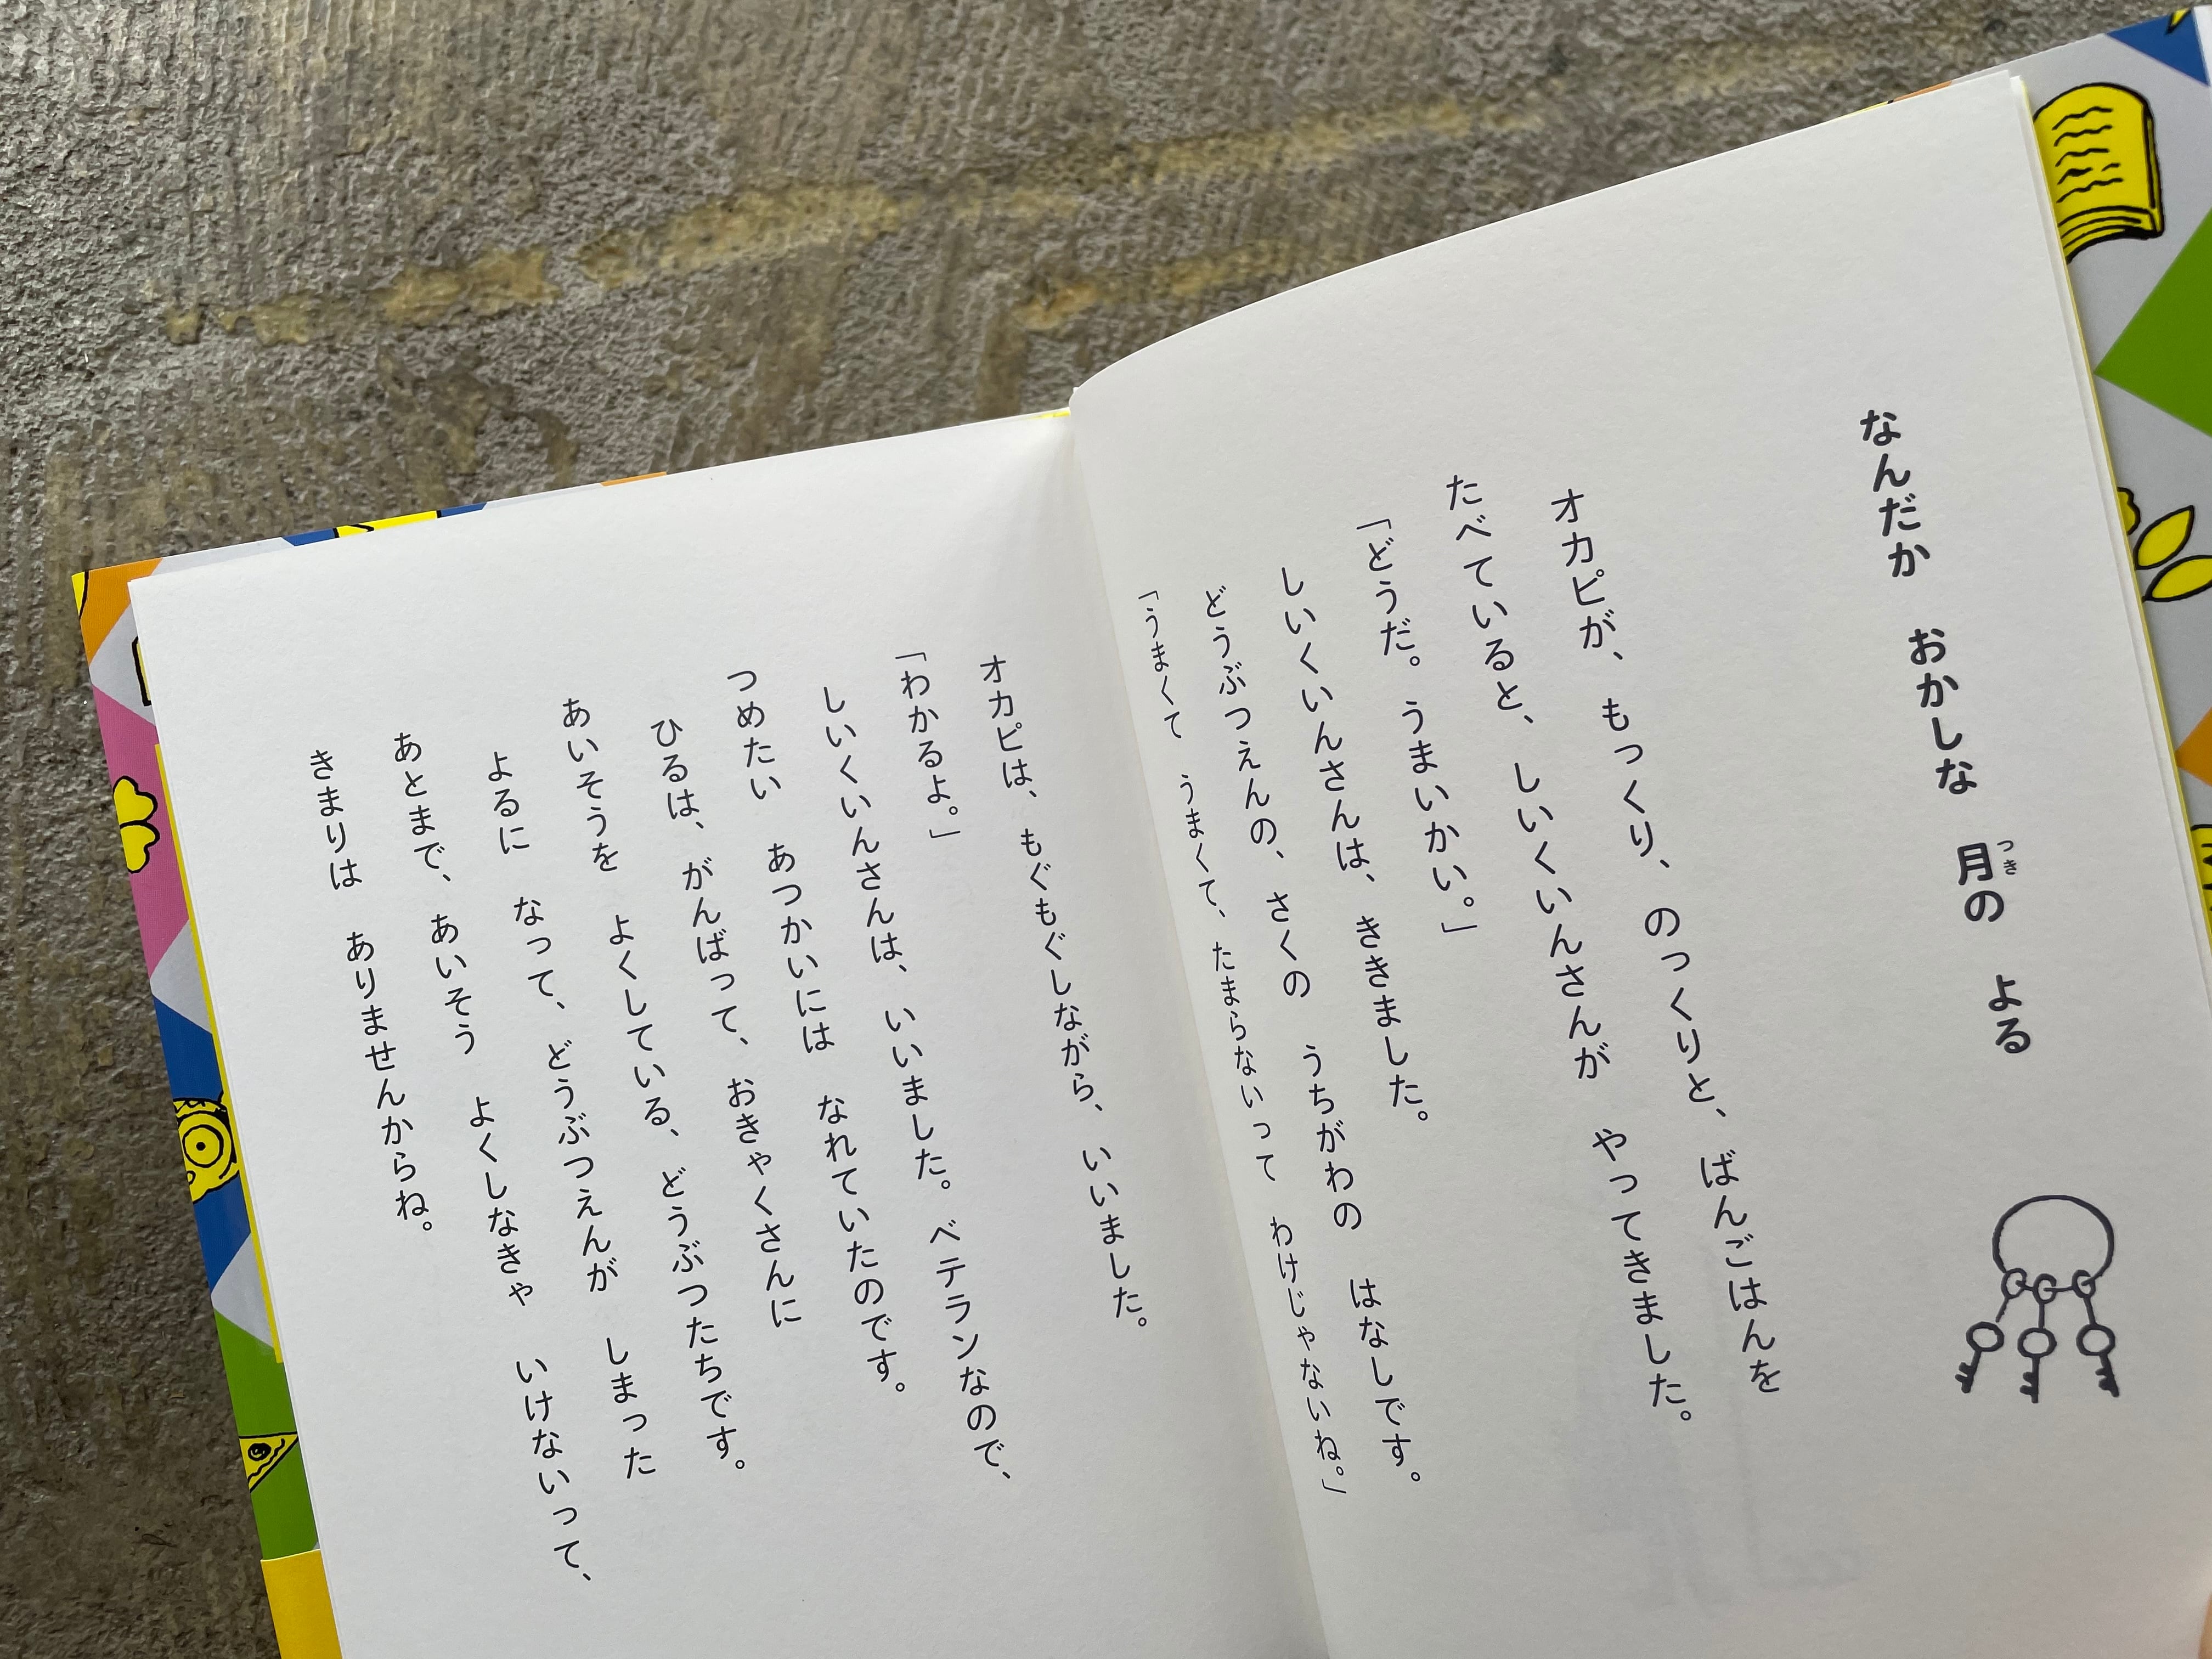 なんだか おかしな 月の よる
つき
オカピが、もっくり、のっくりと、ばんごはんを
たべていると、しいくいんさんが やってきました。
「どうだ。うまいかい。」
しいくいんさんは、ききました。
どうぶつえんの、さくの うちがわの はなしです。
「うまくて うまくて、たまらないって わけじゃないね。」
オカピは、もぐもぐしながら、いいました。
「わかるよ。」
しいくいんさんは、いいました。ベテランなので、
つめたい あつかいには なれていたのです。
ひるは、がんばって、おきゃくさんに
あいそうを よくしている、どうぶつたちです。
よるに なって、どうぶつえんが しまった
あとまで、あいそう よくしなきゃ いけないって、
きまりは ありませんからね。